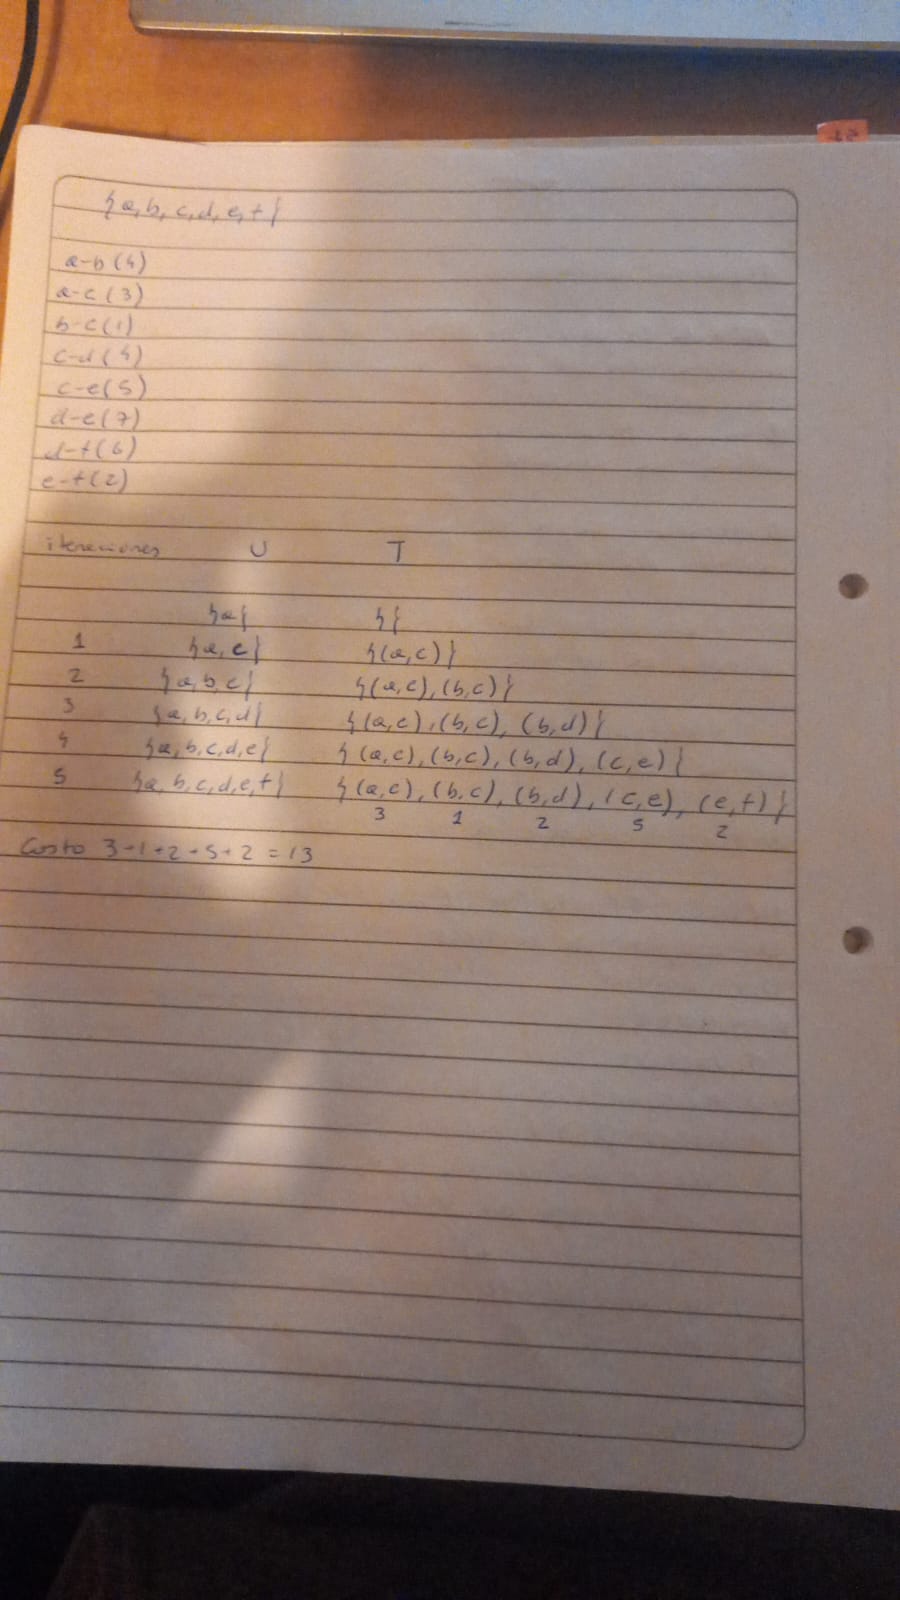 {a, b, c, d, e, f}
a-b (4)
a-c (3)
b-c (1)
c-d (4)
c-e (5)
d-e (7)
d-f (6)
e-f (2)
iteraciones U T
{a} {}
1 {a, c} {(a,c)}
2 {a, b, c} {(a,c), (b,c)}
3 {a, b, c, d} {(a,c), (b,c), (b,d)}
4 {a, b, c, d, e} {(a,c), (b,c), (b,d), (c,e)}
5 {a, b, c, d, e, f} {(a,c), (b,c), (b,d), (c,e), (e,f)}
3 1 2 5 2
Costo 3+1+2+5+2 = 13